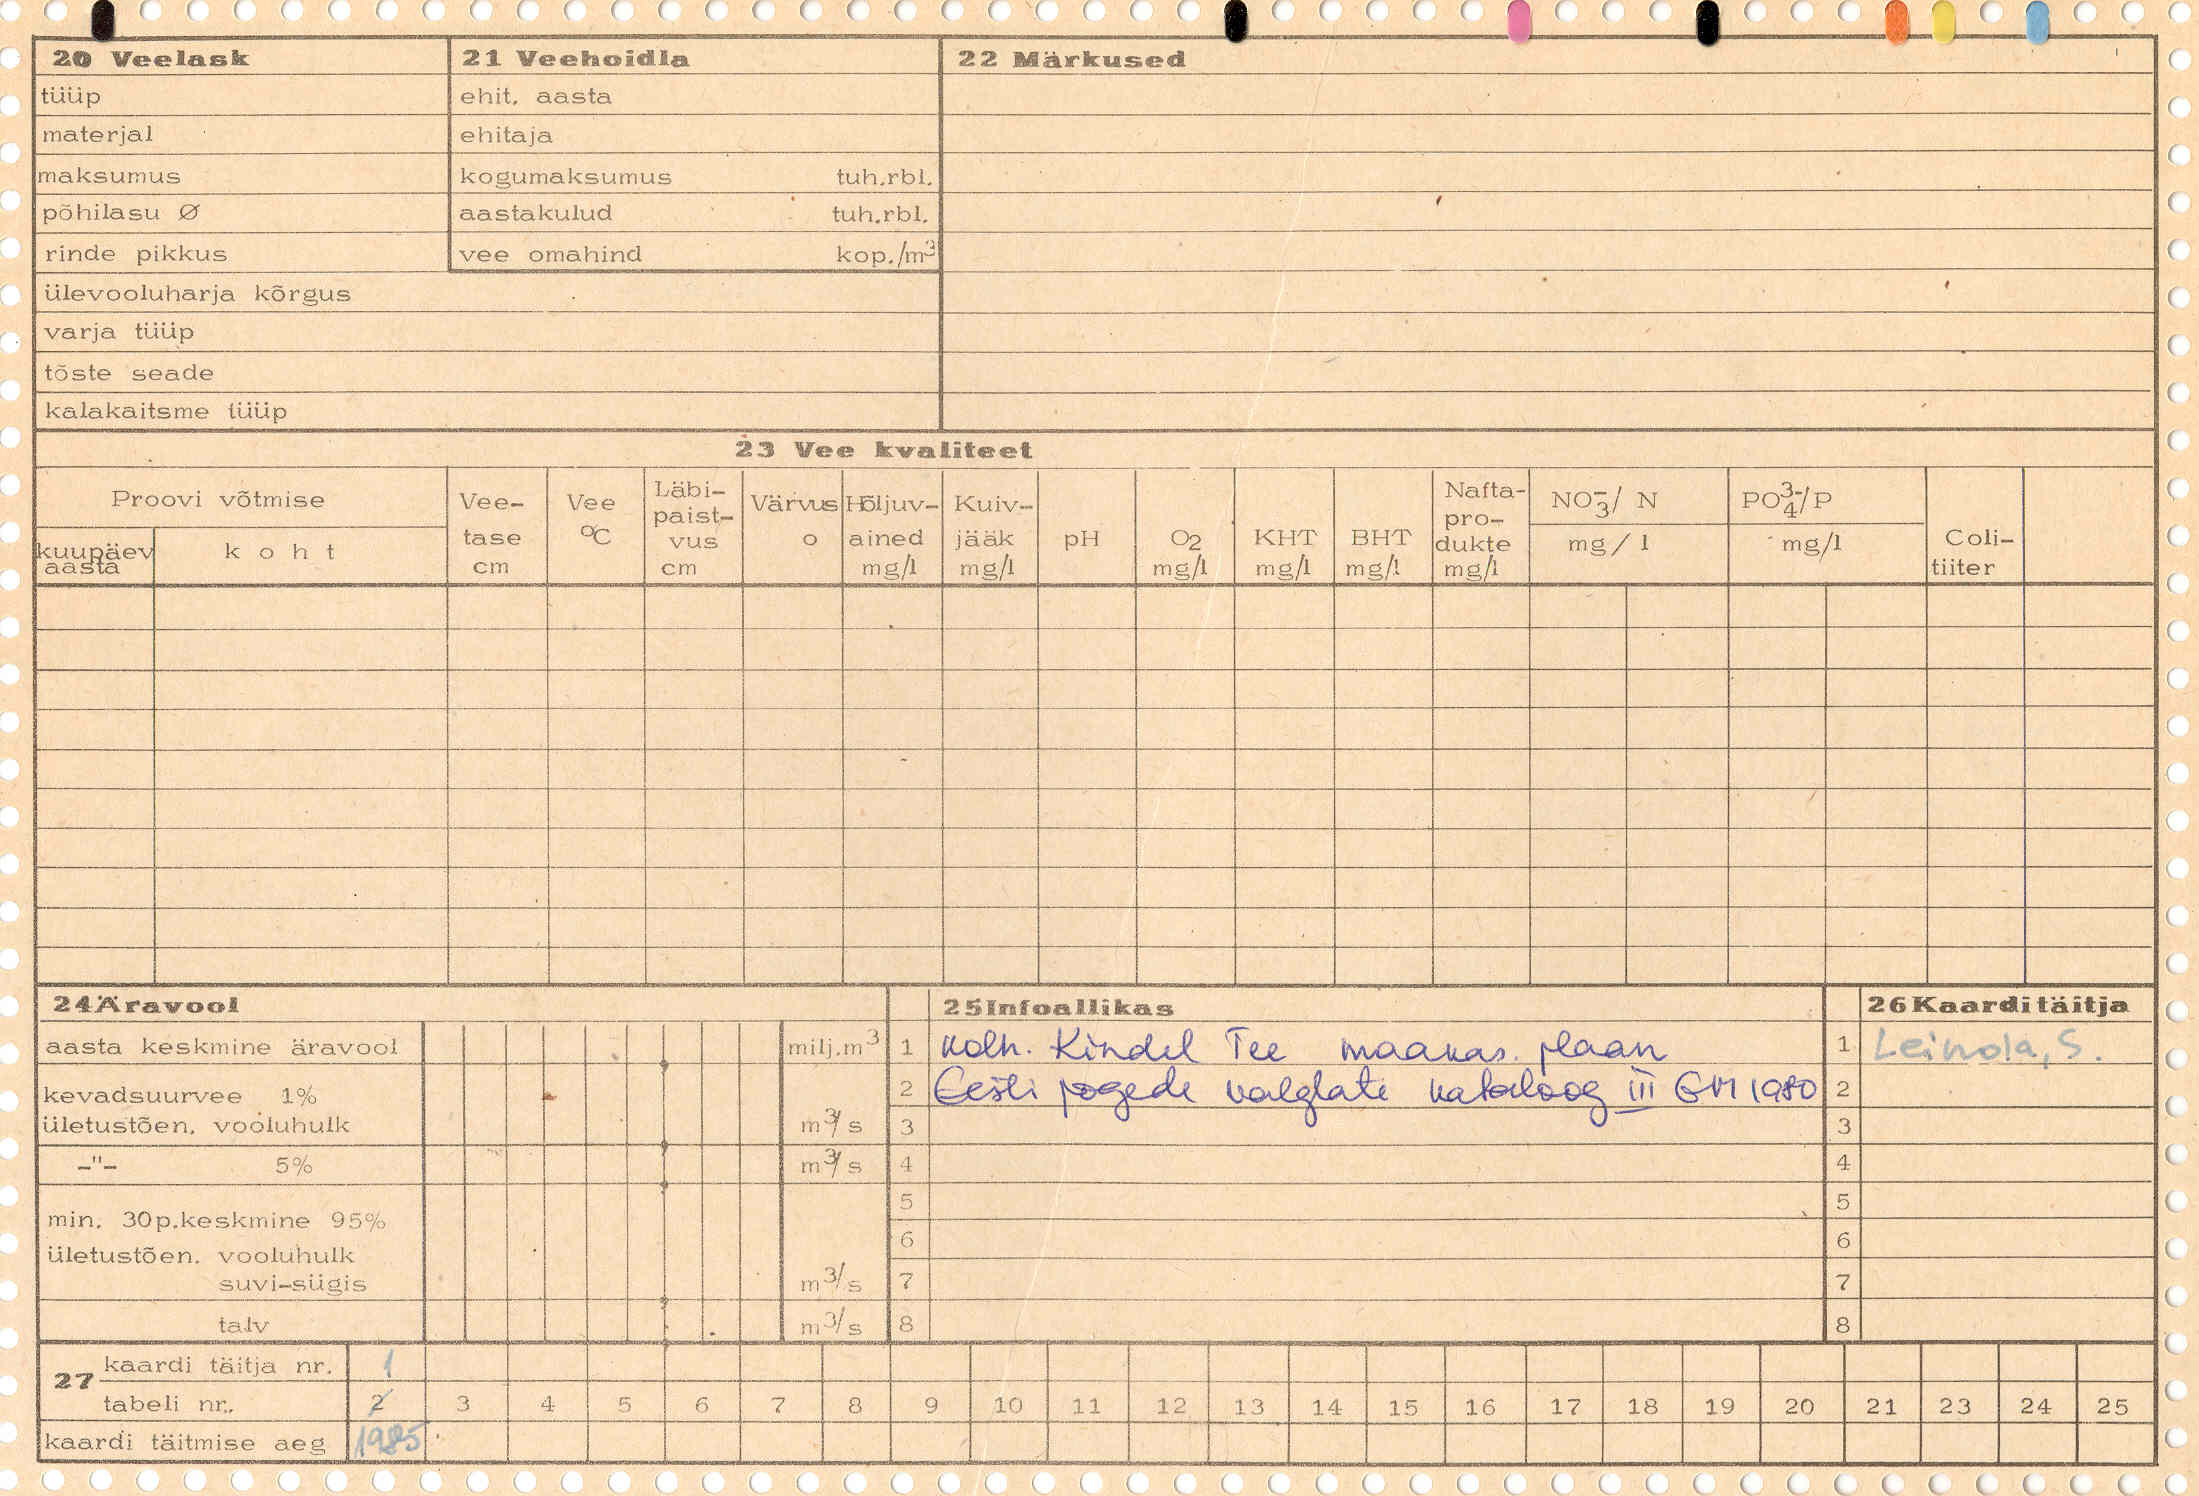 20 Veelask
tüüp
materjal
maksumus
põhilasu Ø
rinde pikkus
ülevooluharja kõrgus
varja tüüp
tõste seade
kalakaitsme tüüp
21 Veehoidla
ehit. aasta
ehitaja
kogumaksumus tuh.rbl.
aastakulud tuh.rbl.
vee omahind kop./m³
22 Märkused
23 Vee kvaliteet
Proovi võtmise
kuupäev
aasta
koht
Vee-
tase
cm
Vee
°C
Läbi-
paist-
vus
cm
Värvus
o
Hõljuv-
ained
mg/l
Kuiv-
jääk
mg/l
pH
O₂
mg/l
KHT
mg/l
BHT
mg/l
Nafta-
pro-
dukte
mg/l
NO₃⁻/ N
mg/l
PO₄³⁻/P
mg/l
Coli-
tiiter
24 Äravool
aasta keskmine äravool milj.m³
kevadsuurvee 1%
ületustõen. vooluhulk m³/s
-"- 5% m³/s
min. 30p.keskmine 95%
ületustõen. vooluhulk
suvi-sügis m³/s
talv m³/s
25 Infoallikas
1 Kolh. Kindel Tee maakas. plaan
2 Eesti jõgede valglate kataloog III EM 1980
3
4
5
6
7
8
26 Kaarditäitja
1 Leinola, S.
2
3
4
5
6
7
8
27
kaardi täitja nr. 1
tabeli nr. 2 3 4 5 6 7 8 9 10 11 12 13 14 15 16 17 18 19 20 21 23 24 25
kaardi täitmise aeg 1985